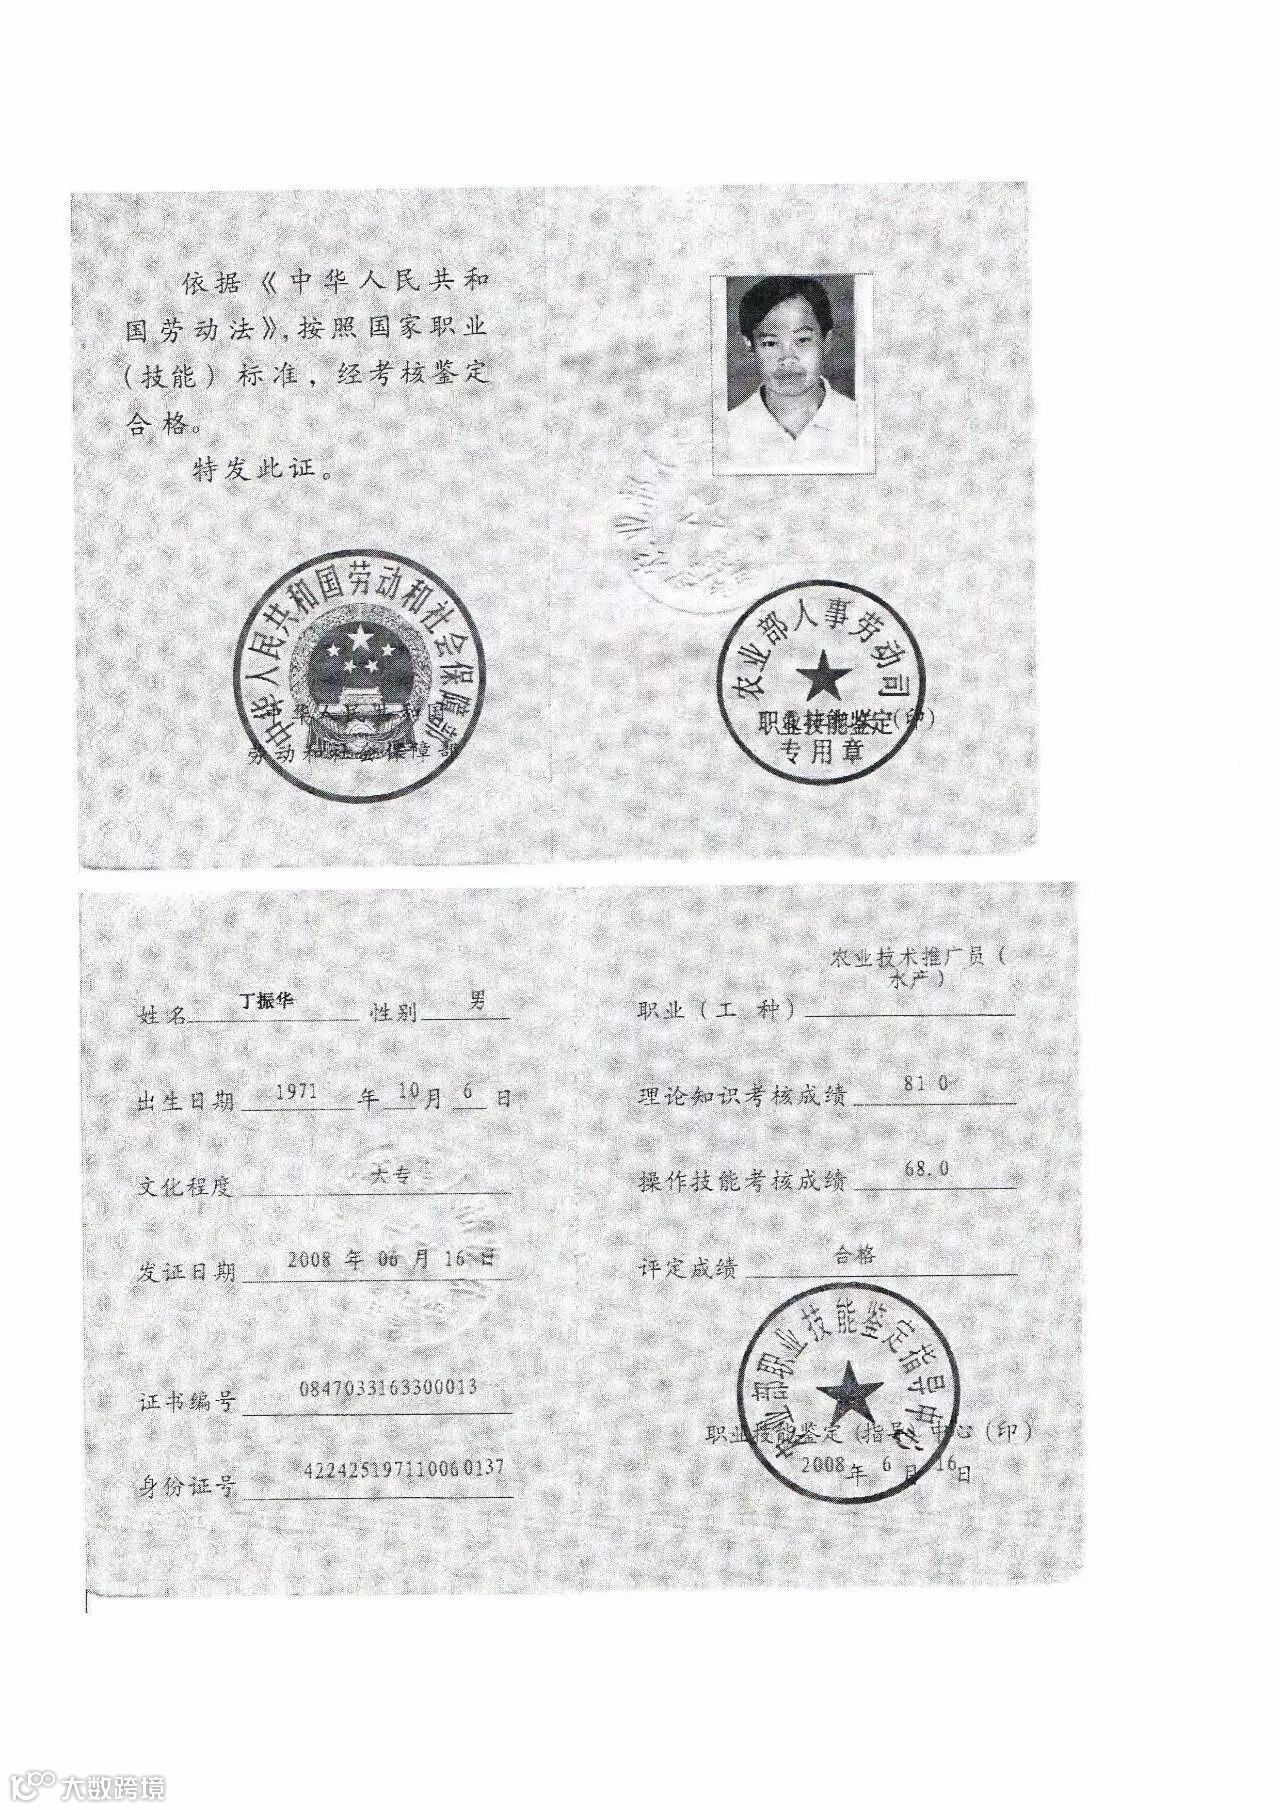 依据《中华人民共和
国劳动法》,按照国家职业
(技能)标准，经考核鉴定
合格。
特发此证。
中华人民共和国劳动和社会保障部
中华人民共和国
劳动和社会保障部
农业部人事劳动司
职业技能鉴定
(印)
专用章
姓名 丁振华 性别 男
出生日期 1971 年 10 月 6 日
文化程度 大专
发证日期 2008 年 06 月 16 日
证书编号 0847033163300013
身份证号 422425197110060137
农业技术推广员(
水产)
职业(工 种)
理论知识考核成绩 81 0
操作技能考核成绩 68.0
评定成绩 合格
农业部职业技能鉴定指导中心
职业技能鉴定(指导)中心(印)
2008 年 6 月 16 日
大数跨境